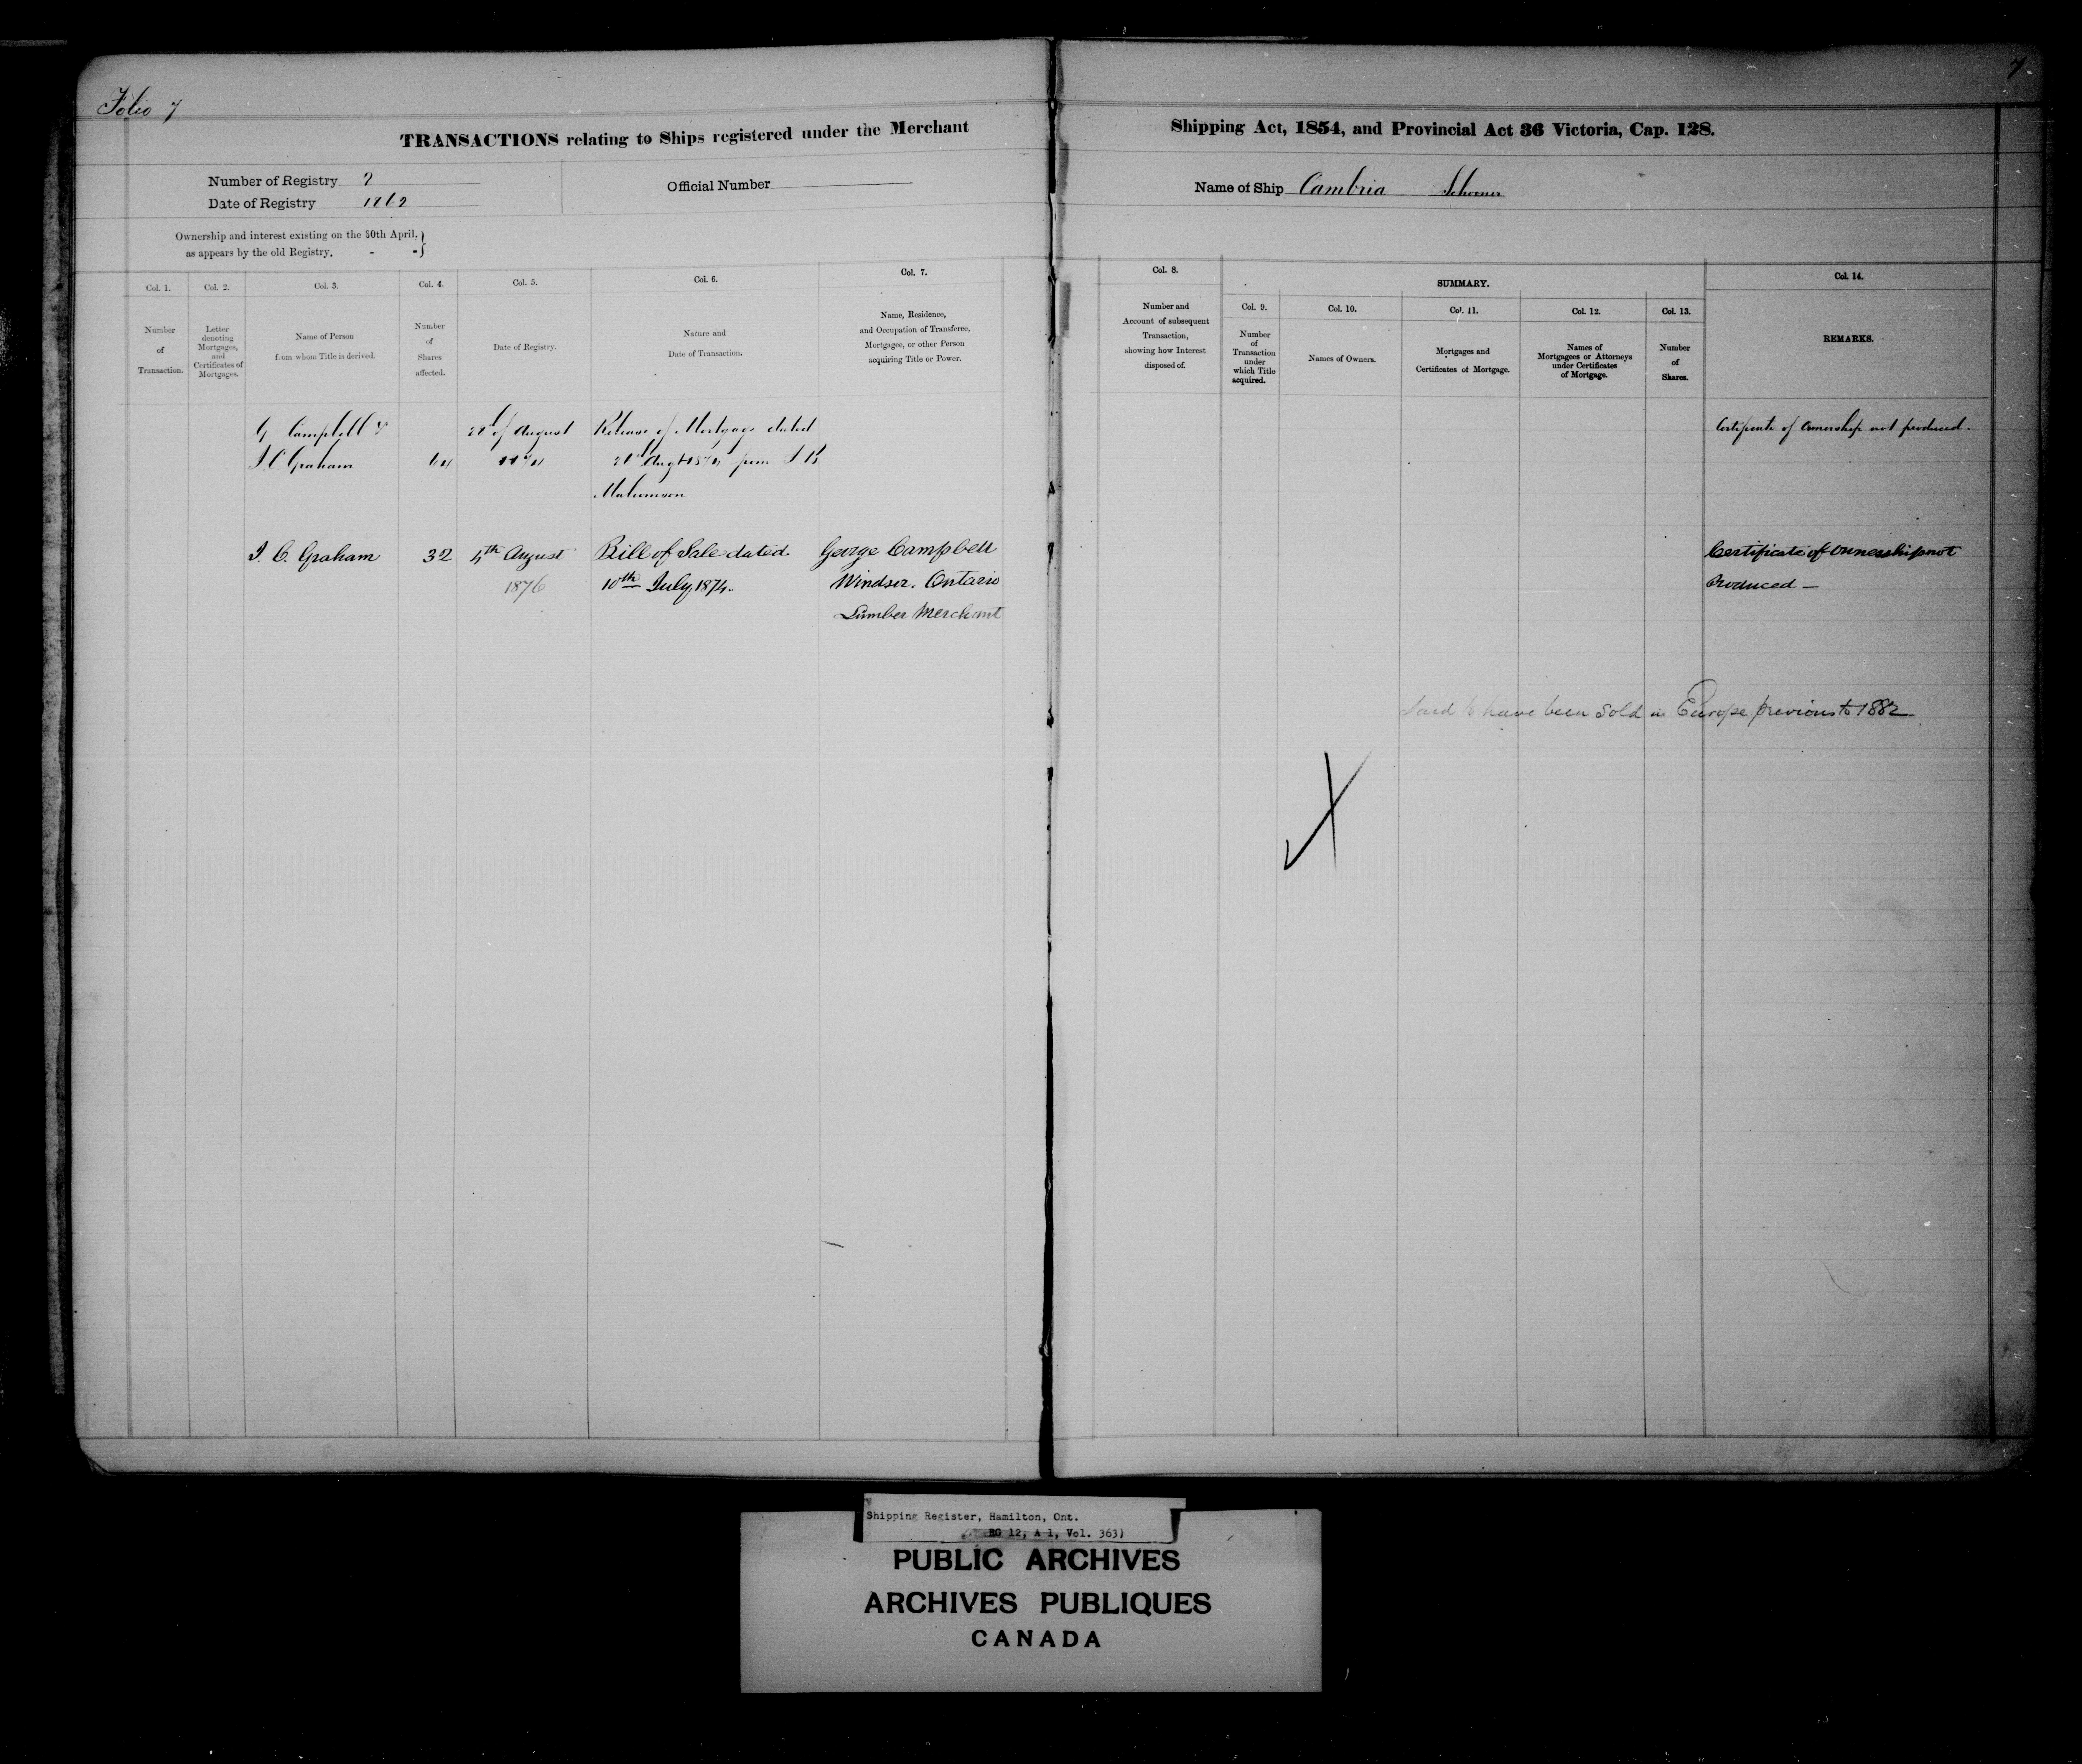 Folio 7
7
TRANSACTIONS relating to Ships registered under the Merchant
Shipping Act, 1854, and Provincial Act 36 Victoria, Cap. 128.
Number of Registry 2
Date of Registry 1862
Official Number
Name of Ship Cambria Schooner
Ownership and interest existing on the 30th April, }
as appears by the old Registry. - - }
Col. 1.
Number
of
Transaction.
Col. 2.
Letter
denoting
Mortgages,
and
Certificates of
Mortgages.
Col. 3.
Name of Person
from whom Title is derived.
Col. 4.
Number
of
Shares
affected.
Col. 5.
Date of Registry.
Col. 6.
Nature and
Date of Transaction.
Col. 7.
Name, Residence,
and Occupation of Transferee,
Mortgagee, or other Person
acquiring Title or Power.
Col. 8.
Number and
Account of subsequent
Transaction,
showing how Interest
disposed of.
SUMMARY.
Col. 9.
Number
of
Transaction
under
which Title
acquired.
Col. 10.
Names of Owners.
Col. 11.
Mortgages and
Certificates of Mortgage.
Col. 12.
Names of
Mortgagees or Attorneys
under Certificates
of Mortgage.
Col. 13.
Number
of
Shares.
Col. 14.
REMARKS.
G Campbell &
of August
Release of Mortgage dated
Certificate of Ownership not produced.
I. C Graham
64
Augt 1874 from
I. C. Graham
32
4th August
Bill of Sale dated
George Campbell
Certificate of Ownership not
1876
10th July 1874.
Windsor. Ontario
Produced —
Lumber Merchant
Said to have been Sold in Europe previous to 1882
Shipping Register, Hamilton, Ont.
RG 12, A 1, Vol. 363)
PUBLIC ARCHIVES
ARCHIVES PUBLIQUES
CANADA